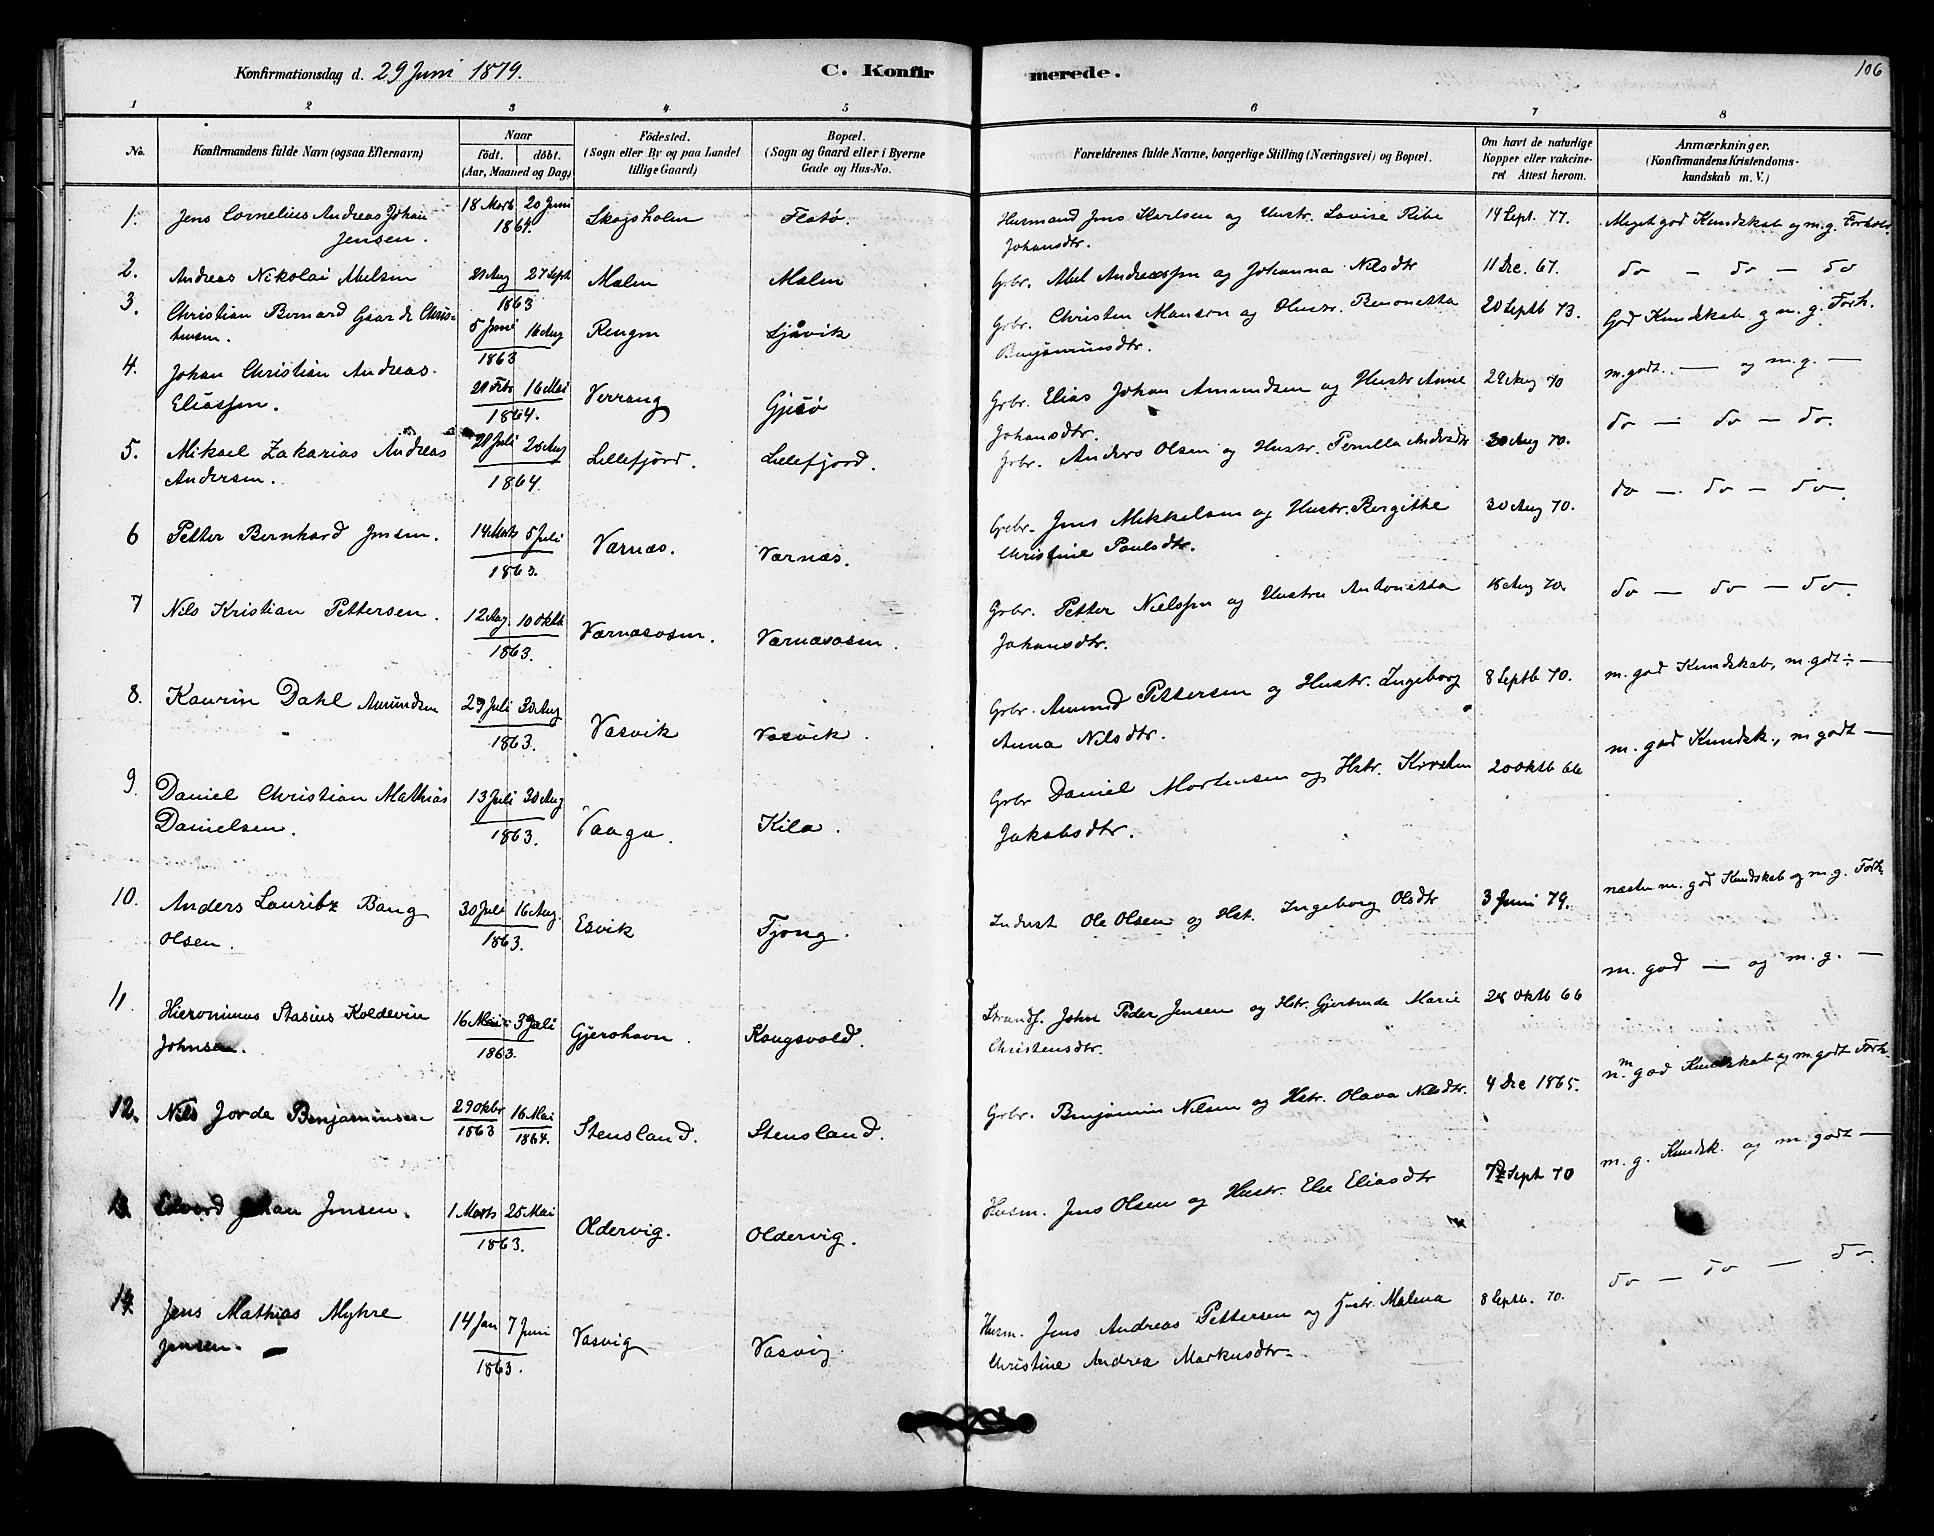 Konfirmationsdag d. 29 Juni 1879.
C. Konfirmerede.
106
1 2 3 4 5 6 7 8
No.
Konfirmandens fulde Navn (ogsaa Efternavn)
Naar
födt. döbt.
(Aar, Maaned og Dag)
Födested.
(Sogn eller By og paa Landet
tillige Gaard)
Bopæl.
(Sogn og Gaard eller i Byerne
Gade og Hus-No.
Forældrenes fulde Navne, borgerlige Stilling (Næringsvei) og Bopæl.
Om havt de naturlige
Kopper eller vakcine-
ret Attest herom.
Anmærkninger,
(Konfirmandens Kristendoms-
kundskab m. V.)
1. Jens Cornelius Andreas Johan 18 Marts 20 Juni Skogsholm Flatø Husmand Jens Karlsen og Hustr. Lovise Ribe 14 Sept. 77. Meget god Kundskab og m. g. Forhold.
Jensen. 1864. Johansdtr.
2. Andreas Nikolai Abelsen 21 Aug 27 Sept Malm Malm Grbr. Abel Andreassen og Johanna Nilsdtr 11 Dec. 67. do — do — do
1863
3. Christian Bernard Gaarde Chris- 5 Juni 16 Aug Rengen Sjåvik Grbr. Christen Hansen og Hustr. Benonetta 20 Septb 73. God Kundskab og m. g. Forh.
tensen. 1863 Benjaminsdtr.
4. Johan Christian Andreas 21 Febr 16 Mai Verrang Gjesø Grbr. Elias Johan Amundsen og Hustr Anne 29 Aug 70 m. godt — og m. g. —
Eliassen. 1864. Johansdtr.
5. Mikael Zakarias Andreas 21 Juli 28 Aug Lillefjord. Lillefjord. Grbr. Anders Olsen og Hustr. Pernilla Andersdtr 30 Aug 70. do — do — do.
Andersen. 1864.
6 Petter Bernhard Jensen. 14 Marts 5 Juli Værnæs. Værnæs. Grbr. Jens Mikkelsen og Hustr. Bergithe 30 Aug 70. do — do — do —
1863. Christine Paulsdtr.
7 Nils Kristian Pettersen. 12 Aug. 10 Oktb Værnæsosen. Værnæsosen. Grbr. Petter Nielssen og Hustru Antonetta 18 Aug 70. do — do — do —
1863. Johansdtr.
8. Kaurin Dahl Amundsen 29 Juli 30 Aug Vasvik Vasvik. Grbr. Amund Pettersen og Hustr. Ingeborg 8 Septb 70. m. god Kundskab, m. godt —
1863. Anna Nilsdtr.
9. Daniel Christian Mathias 13 Juli 30 Aug Vaaga. Kila. Grbr Daniel Mortensen og Hstr. Kirsten 20 Oktb 66 m. god Kundsk., m godt —
Danielsen. 1863. Jakobsdtr.
10. Anders Lauritz Bang 30 Juli 16 Aug. Esvik Tjong. Inderst Ole Olsen og Hst. Ingeborg Olsdtr 3 Juni 79. næsten m. god Kundskab og m. g. Forh.
Olsen. 1863.
11 Hieronimus Stasius Koldevin 16 Mai 3 Juli Gjerøhavn. Kongsvold. Strandf. John Peder Jensen og Hstr. Gjertrude Marie 28 Oktb 66 m. god — og m. g. —
Johnsen. 1863. Christensdtr.
12. Nils Jorda Benjaminsen 29 Oktbr 16 Mai Stensland. Stensland. Grbr. Benjamin Nilsen og Hstr. Olava Nilsdtr. 4 Dec 1865. n. m god Kundskab og m. godt Forh.
1863 1864.
13. Edvard Johan Jensen. 1 Marts 25 Mai Oldervig. Oldervig. Husm. Jens Olsen og Hustr. Else Eliasdtr 7 Sept 70 m. g. Kundsk. og m. godt —
1863.
14. Jens Mathias Myhre 14 Jan 7 Juni Vasvig Vasvig. Husm. Jens Andreas Pettersen og Hustr. Malena 8 Septb. 70. do — do — do.
Jensen. 1863. Christine Andrea Markusdtr.